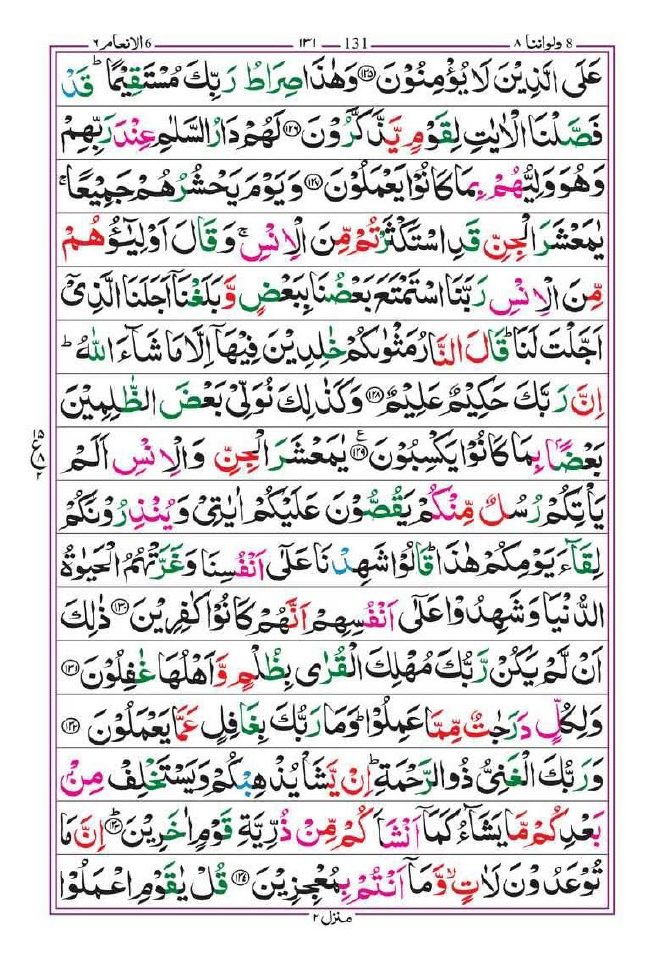 8 ولواننا ۸ 131 ۱۳۱ 6 الانعام ۶
عَلَى الَّذِيْنَ لَا يُؤْمِنُوْنَ ﴿۱۲۵﴾ وَهٰذَا صِرَاطُ رَبِّكَ مُسْتَقِيْمًا ؕ قَدْ
فَصَّلْنَا الْاٰيٰتِ لِقَوْمٍ يَّذَّكَّرُوْنَ ﴿۱۲۶﴾ لَهُمْ دَارُ السَّلٰمِ عِنْدَ رَبِّهِمْ
وَهُوَ وَلِيُّهُمْ بِمَا كَانُوْا يَعْمَلُوْنَ ﴿۱۲۷﴾ وَيَوْمَ يَحْشُرُهُمْ جَمِيْعًا ۚ
يٰمَعْشَرَ الْجِنِّ قَدِ اسْتَكْثَرْتُمْ مِّنَ الْاِنْسِ ۚ وَقَالَ اَوْلِيٰٓـؤُهُمْ
مِّنَ الْاِنْسِ رَبَّنَا اسْتَمْتَعَ بَعْضُنَا بِبَعْضٍ وَّبَلَغْنَاۤ اَجَلَنَا الَّذِيْۤ
اَجَّلْتَ لَنَا ؕ قَالَ النَّارُ مَثْوٰىكُمْ خٰلِدِيْنَ فِيْهَاۤ اِلَّا مَا شَآءَ اللّٰهُ ؕ
اِنَّ رَبَّكَ حَكِيْمٌ عَلِيْمٌ ﴿۱۲۸﴾ وَكَذٰلِكَ نُوَلِّيْ بَعْضَ الظّٰلِمِيْنَ
بَعْضًۢا بِمَا كَانُوْا يَكْسِبُوْنَ ﴿۱۲۹﴾ ع يٰمَعْشَرَ الْجِنِّ وَالْاِنْسِ اَلَمْ
۱۵ ع ۸ ۲
يَاْتِكُمْ رُسُلٌ مِّنْكُمْ يَقُصُّوْنَ عَلَيْكُمْ اٰيٰتِيْ وَيُنْذِرُوْنَكُمْ
لِقَآءَ يَوْمِكُمْ هٰذَا ؕ قَالُوْا شَهِدْنَا عَلٰٓى اَنْفُسِنَا وَغَرَّتْهُمُ الْحَيٰوةُ
الدُّنْيَا وَشَهِدُوْا عَلٰٓى اَنْفُسِهِمْ اَنَّهُمْ كَانُوْا كٰفِرِيْنَ ﴿۱۳۰﴾ ذٰلِكَ
اَنْ لَّمْ يَكُنْ رَّبُّكَ مُهْلِكَ الْقُرٰى بِظُلْمٍ وَّاَهْلُهَا غٰفِلُوْنَ ﴿۱۳۱﴾
وَلِكُلٍّ دَرَجٰتٌ مِّمَّا عَمِلُوْا ؕ وَمَا رَبُّكَ بِغَافِلٍ عَمَّا يَعْمَلُوْنَ ﴿۱۳۲﴾
وَرَبُّكَ الْغَنِيُّ ذُو الرَّحْمَةِ ؕ اِنْ يَّشَاْ يُذْهِبْكُمْ وَيَسْتَخْلِفْ مِنْۢ
بَعْدِكُمْ مَّا يَشَآءُ كَمَاۤ اَنْشَاَكُمْ مِّنْ ذُرِّيَّةِ قَوْمٍ اٰخَرِيْنَ ﴿۱۳۳﴾ ؕ اِنَّ مَا
تُوْعَدُوْنَ لَاٰتٍ ۙ وَّمَاۤ اَنْتُمْ بِمُعْجِزِيْنَ ﴿۱۳۴﴾ قُلْ يٰقَوْمِ اعْمَلُوْا
منزل ۲